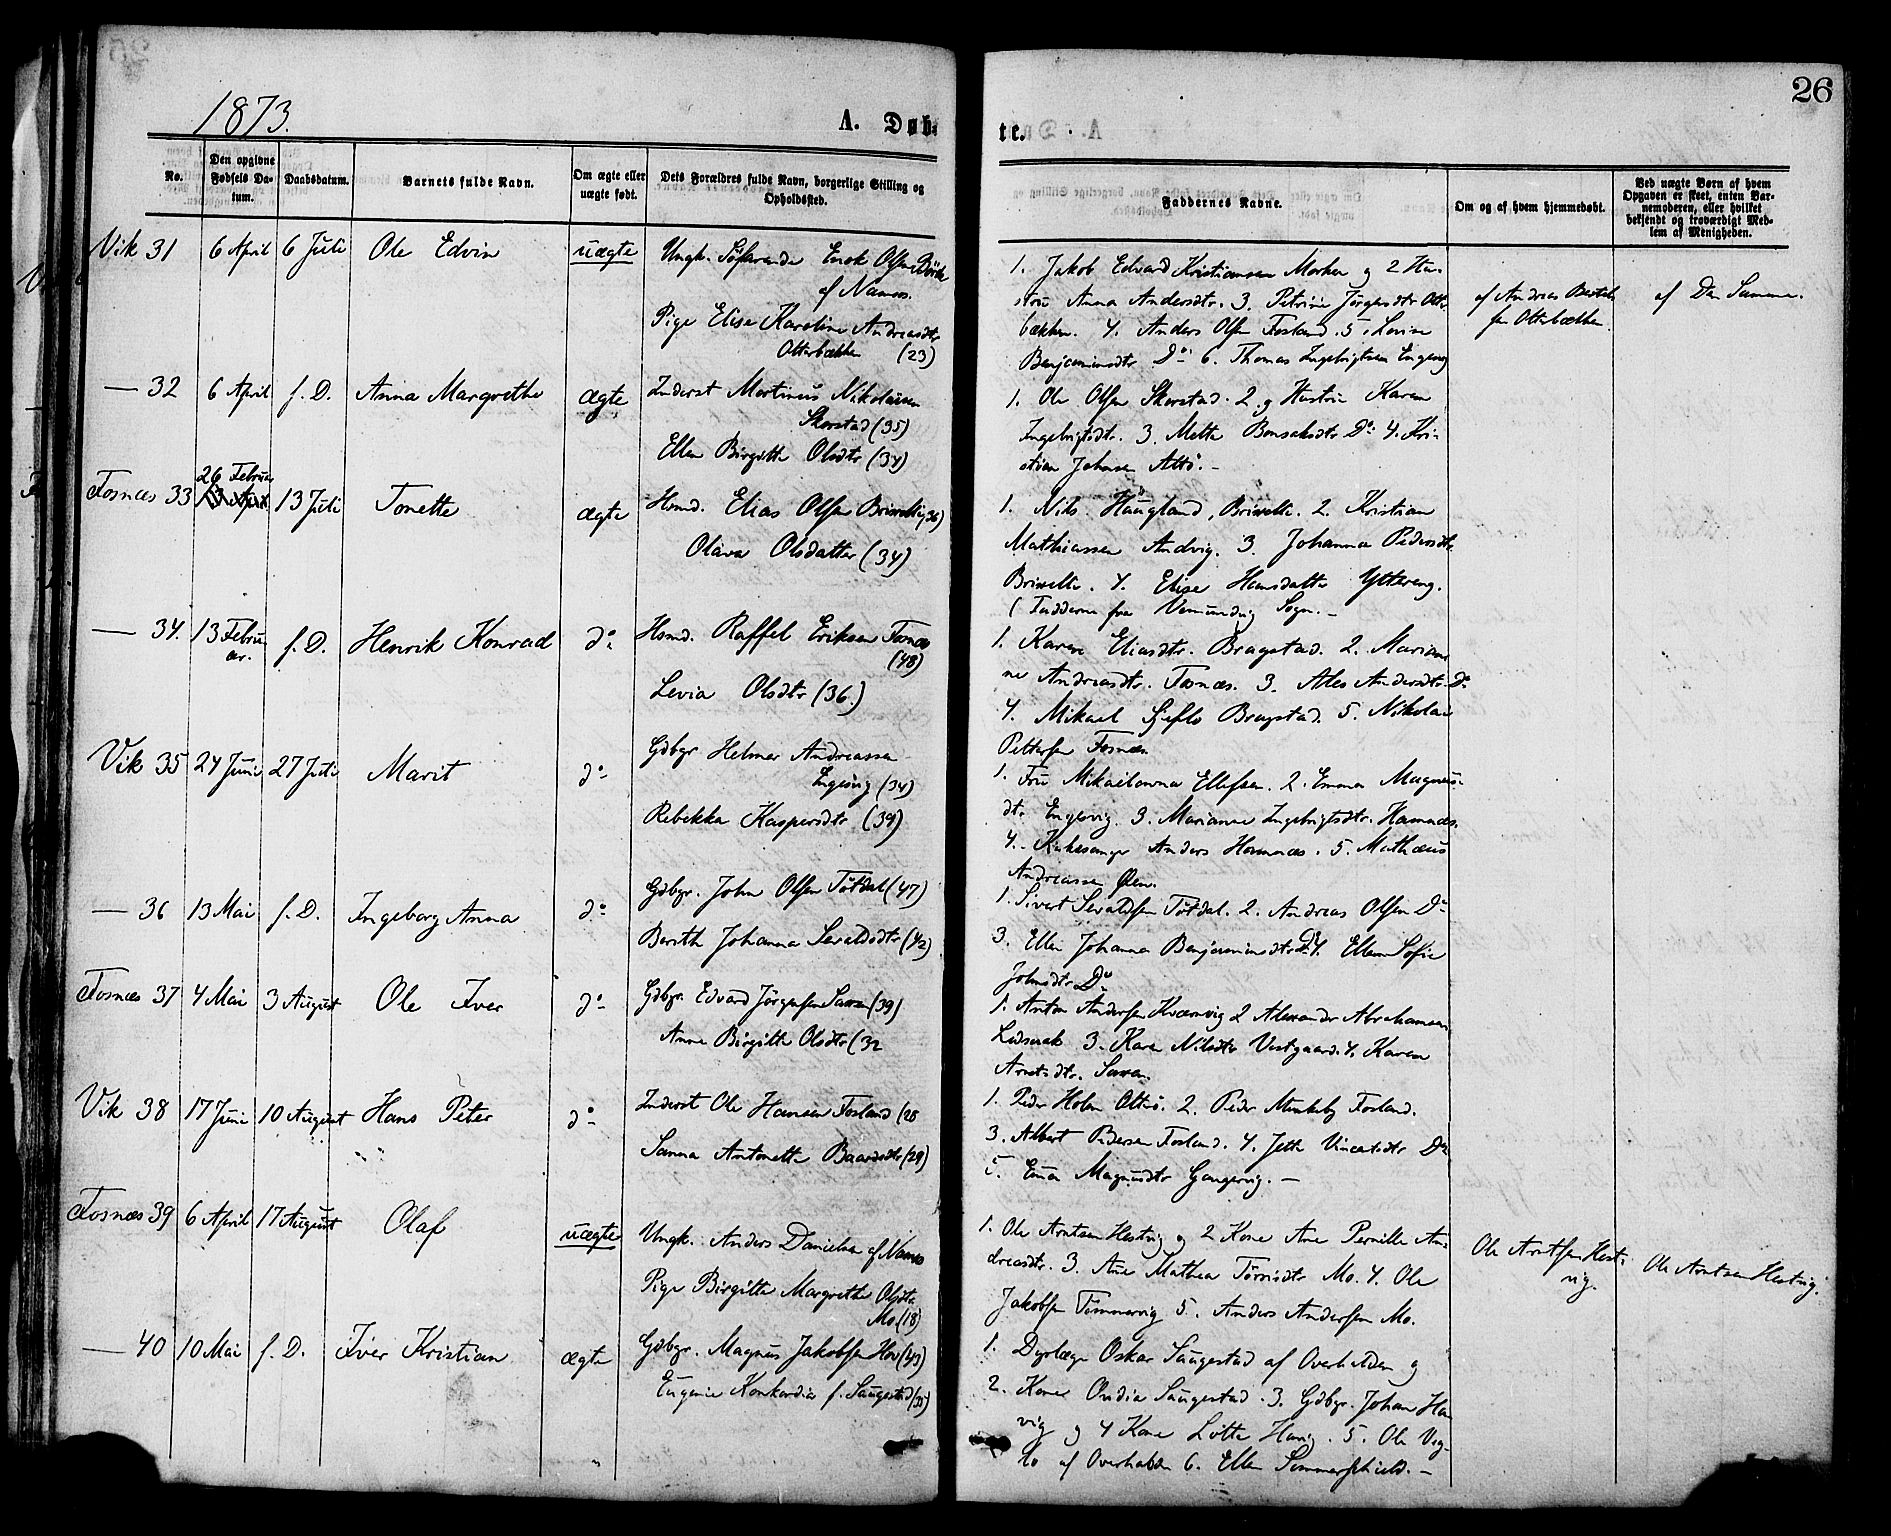 26
1873.
A. Døb-
te.
No.
Den opgivne Fødsels Da-
tum.
Daabsdatum.
Barnets fulde Navn.
Om ægte eller
uægte født.
Dets Forældres fulde Navn, borgerlige Stilling og
Opholdssted.
Faddernes Navne.
Om og af hvem hjemmedøbt.
Ved uægte Børn af hvem
Opgaven er skeet, enten Bar-
nemoderen, eller hvilket
bekjendt og troværdigt Med-
lem af Menigheden.
Vik 31 6 April 6 Juli Ole Edvin uægte Ungk. Søfarende Enok Olsen
af Namsos.
Pige Elise Karoline Andreasdtr
Otterbækken (23)
1. Jakob Edvard Kristiansen Morken og 2 Hu-
stru Anna Andersdtr. 3. Petrine Jørgensdtr Otter-
bækken. 4. Anders Olsen Fosland. 5. Lovise
Benjaminsdtr Do 6. Thomas Ingebrigtsen Engesvig
af Andreas
sen Otterbækken.
af Den Samme.
— 32 6 April f. D. Anna Margrethe ægte Inderst Martinus Nikolaisen
Skorstad (35)
Ellen Birgitte Olsdtr (34)
1. Ole Olsen Skorstad. 2. og Hustru Karen
Ingebrigtsdtr. 3. Metta Bonsaksdtr Do 4. Kri-
stian Johnsen Altø. –
Fosnæs 33 26 Februar 13 Juli Tonette ægte Hsmd. Elias Olsen (36)
Olava Olsdatter (34)
1. Nils Haugland, 2. Kristian
Mathiassen Andvig. 3. Johanna Pedersdtr.
4. Elise Hansdatter Yttereng.
(Fadderne fra Vemundvig Sogn. –
— 34. 13 Febru-
ar. f. D. Henrik Konrad do Hsmd. Raffel Eriksen Fosnæs
(48)
Levia Olsdtr (36.)
1. Karen Eliasdtr. Bragstad. 2. Marian-
ne Andreasdtr. Fosnæs. 3. Ales Andersdtr. Do
4. Mikael Sjeflo Bragstad. 5. Nikolai
Pettersen Fosnæs.
Vik 35 24 Juni 27 Juli Marit do Gdbgr Helmer Andreassen
Engesvig (34)
Rebekka Kaspersdtr (39)
1. Fru Mikaelanna Ellefsen. 2. Emma Magnus-
dtr Engesvig. 3. Marianne Ingebrigtsdtr. Hamnæs.
4. Kirkesanger Anders Hamnæs. 5. Mathæus
Andreassen Øien.
— 36 13 Mai f. D. Ingeborg Anna do Gdbgr. John Olsen Tøtdal (47)
Bereth Johanna Sevaldsdtr (42)
1. Sivert Sevaldsen Tøtdal. 2. Andreas Olsen Do
3. Ellen Johanna Benjaminsdtr Do 4. Ellen Sofie
Johnsdtr Do
Fosnæs 37 4 Mai 3 August Ole Iver do Gdbgr. Edvard Jørgensen Saxen (39)
Anne Birgitte Olsdtr (32
1. Anton Andersen Kværnvig 2 Alexander Abrahamsen
3. Karen Nilsdtr Vestgaard. 4. Karen
Arntsdtr. Saxen.
Vik 38 17 Juni 10 August Hans Peter do Inderst Ole Hansen Fosland (28
Sanna Antonette Baardsdtr (29)
1. Peder Holm Otterø. 2. Peder Fosland.
3. Albert Pedersen Fosland. 4. Jette Vincentsdtr Do
5. Emma Magnusdtr Gangsvig. –
Fosnæs 39 6 April 17 August Olaf uægte Ungk. Anders Danielsen af Namsos
Pige Birgitte Margrethe Olsdtr
Mo (18)
1. Ole Arntsen Hestvig og 2 Kone Ane Pernille An-
dreasdtr. 3. Ane Mathea Tørrisdtr Mo. 4. Ole
Jakobsen Tømmervig 5. Anders Andersen Mo.
Ole Arntsen Hest-
vig.
Ole Arntsen Hestvig.
— 40 10 Mai f. D. Iver Kristian ægte Gdbgr. Magnus Jakobsen Hov (43)
Eugenie Konkordia f. Saugestad (35)
1. Dyrlæge Oskar Saugestad af Overhalden og
2. Kone Ovidia Saugestad. 3. Gdbgr. Johan Ha-
vig og 4 Kone Lotte Havig. 5. Ole Vig-
lo af Overhalden 6. Ellen Sommerschield. –